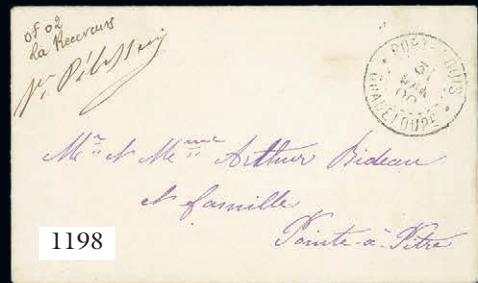 of 02
La Receveuse
PORT-LOUIS
GUADELOUPE
Mr et Mme Arthur Bideau
et famille
Pointe-à-Pitre
1198